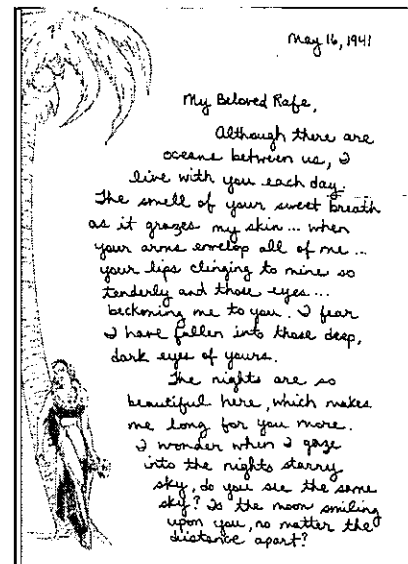 May 16, 1941
My Beloved Rafe,
Although there are
oceans between us, I
live with you each day.
The smell of your sweet breath
as it grazes my skin... when
your arms envelop all of me...
your lips clinging to mine so
tenderly and those eyes...
beckoning me to you. I fear
I have fallen into those deep,
dark eyes of yours.
The nights are so
beautiful here, which makes
me long for you more.
I wonder when I gaze
into the nights starry
sky, do you see the same
sky? Is the moon smiling
upon you, no matter the
distance apart?